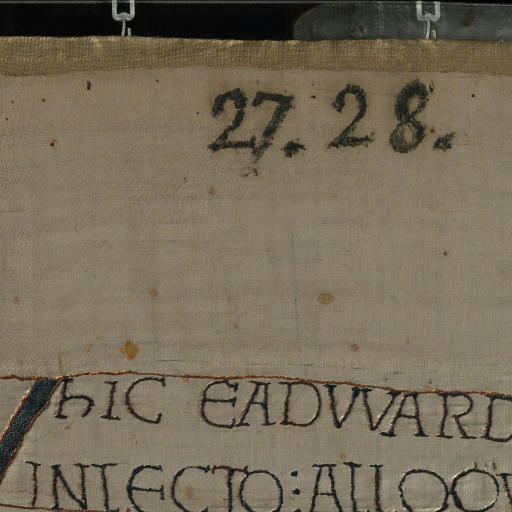 27. 28.
hIC EADVVARD
IN LECTO: ALLOQV